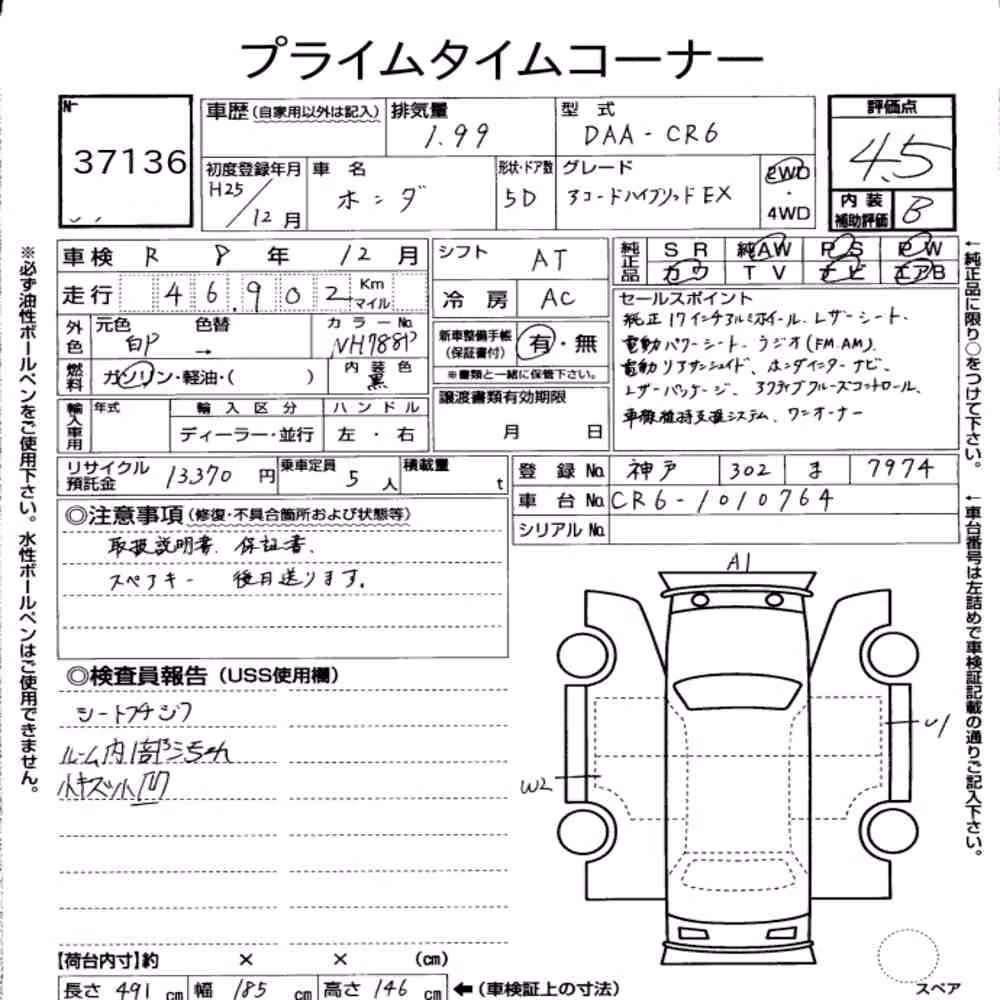 プライムタイムコーナー
No. 37136
車歴 (自家用以外は記入) 排気量 1.99 型式 DAA-CR6
評価点 4.5
初度登録年月 H25/12月 車名 ホンダ 形状・ドア数 5D グレード アコードハイブリッドEX 2WD・4WD
内装補助評価 B
車検 R 8年 12月 シフト AT 純正品 SR 純AW PS PW
カワ TV ナビ エアB
走行 46,902 Km マイル 冷房 AC
外色 元色 白P 色替 → カラーNo. NH788P
新車整備手帳(保証書付) 有・無
※書類と一緒に保管下さい。
燃料 ガソリン・軽油・( ) 内装色 黒
輸入車用 年式 輸入区分 ハンドル
ディーラー・並行 左・右
譲渡書類有効期限
月 日
セールスポイント
純正17インチアルミホイール、レザーシート、
電動パワーシート、ラジオ(FM.AM)、
電動リアサンシェイド、ホンダインターナビ、
レザーパッケージ、アクティブクルーズコントロール、
車線維持支援システム、ワンオーナー
リサイクル預託金 13,370円 乗車定員 5人 積載量 t
登録No. 神戸 302 ま 7974
車台No. CR6-1010764
シリアルNo.
◎注意事項(修復・不具合箇所および状態等)
取扱説明書、保証書、
スペアキー 後日送ります。
◎検査員報告(USS使用欄)
シートスレシワ
ルーム内
小キズ小凹
A1
U1
W2
【荷台内寸】約 × × (cm)
長さ 491 cm 幅 185 cm 高さ 146 cm ←(車検証上の寸法)
スペア
※必ず油性ボールペンをご使用下さい。水性ボールペンはご使用できません。
←純正品に限り○をつけて下さい。
←車台番号は左詰めで車検証記載の通りご記入下さい。